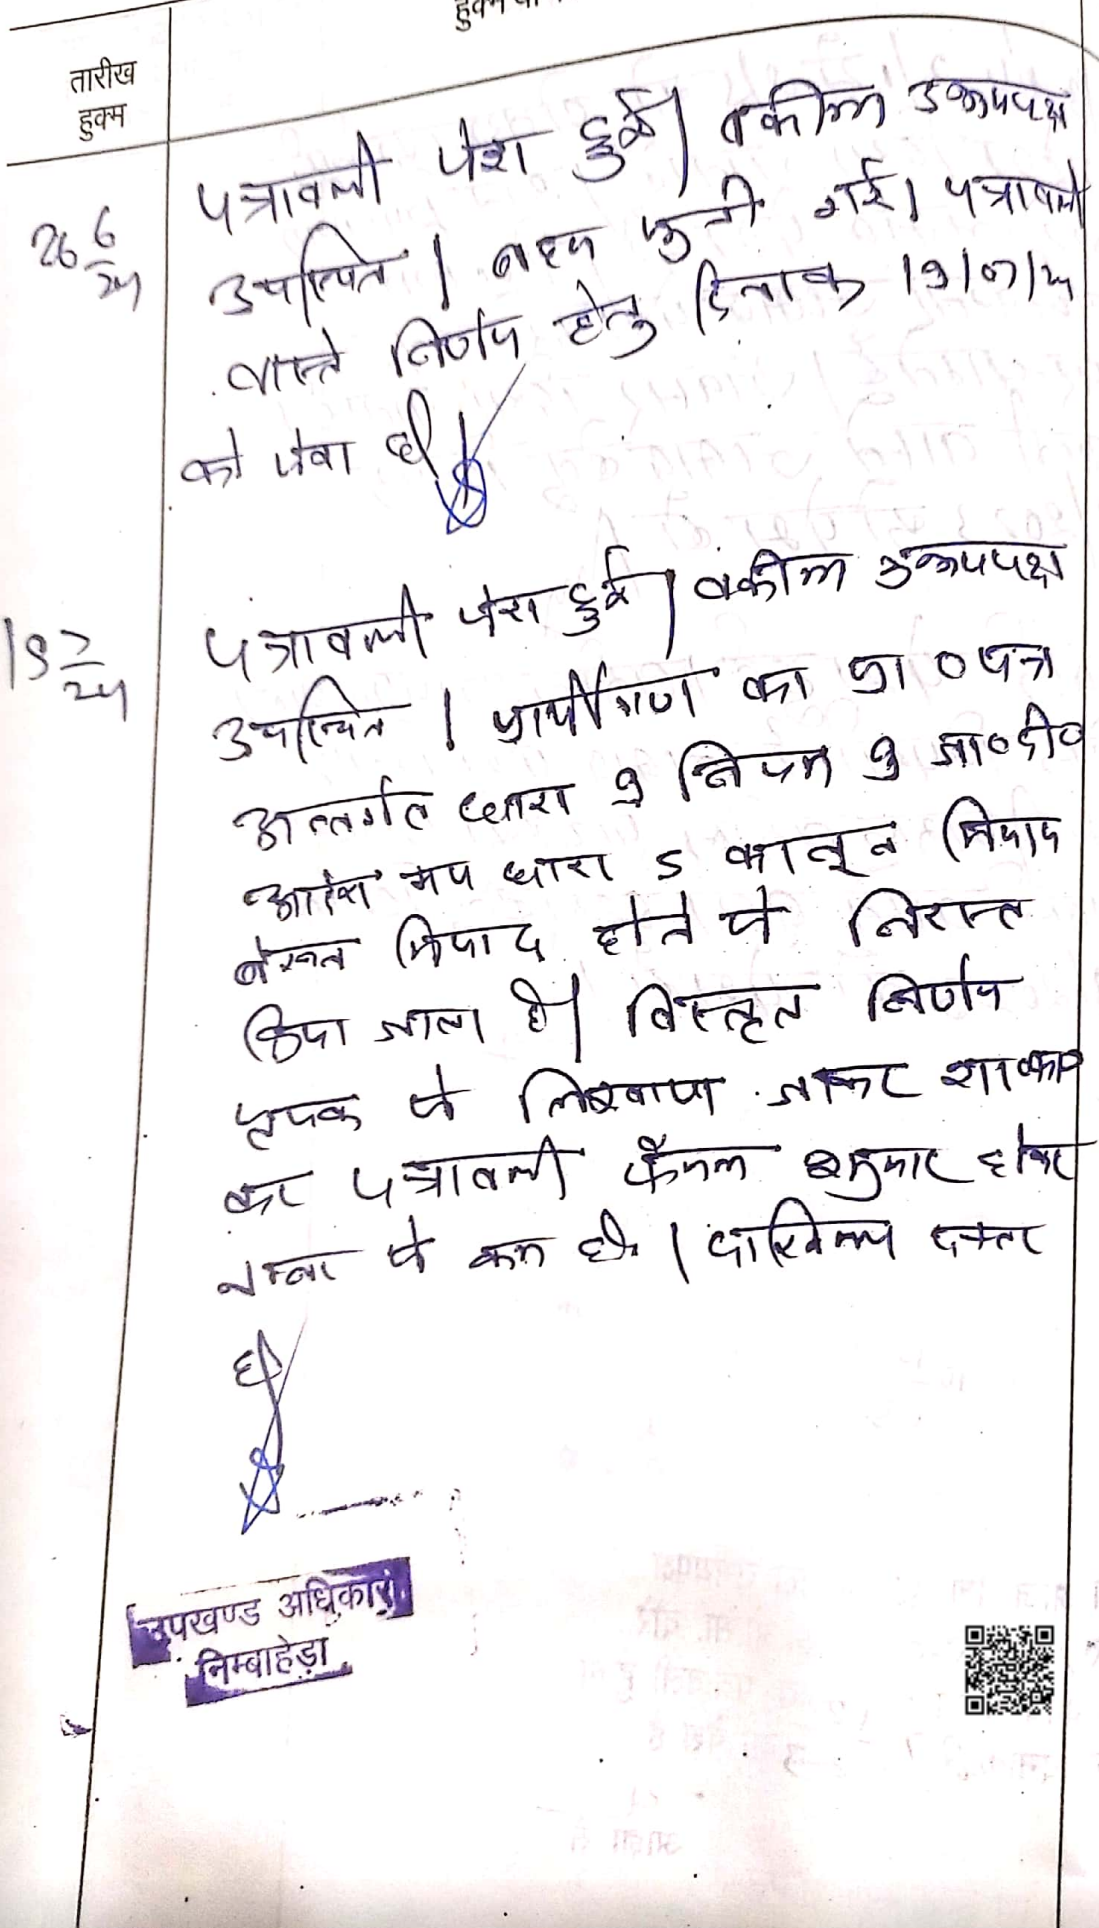 तारीख
हुक्म
26/6/24
पत्रावली पेश हुई। वकील उभयपक्ष
उपस्थित। बहस सुनी गई। पत्रावली
वास्ते निर्णय हेतु दिनांक 19/07/24
को पेश हो
19/7/24
पत्रावली पेश हुई। वकील उभयपक्ष
उपस्थित। प्रार्थीगण का प्रा० पत्र
अन्तर्गत धारा 9 नियम 9 जा०दी०
आदेश मय धारा 5 कानून मियाद
बेरून मियाद होने से निरस्त
किया जाता है। विस्तृत निर्णय
पृथक से लिखवाया जाकर शा०
कर पत्रावली फैसल शुमार होकर
नम्बर से कम हो। दाखिल दफ्तर
हो
उपखण्ड अधिकारी
निम्बाहेड़ा